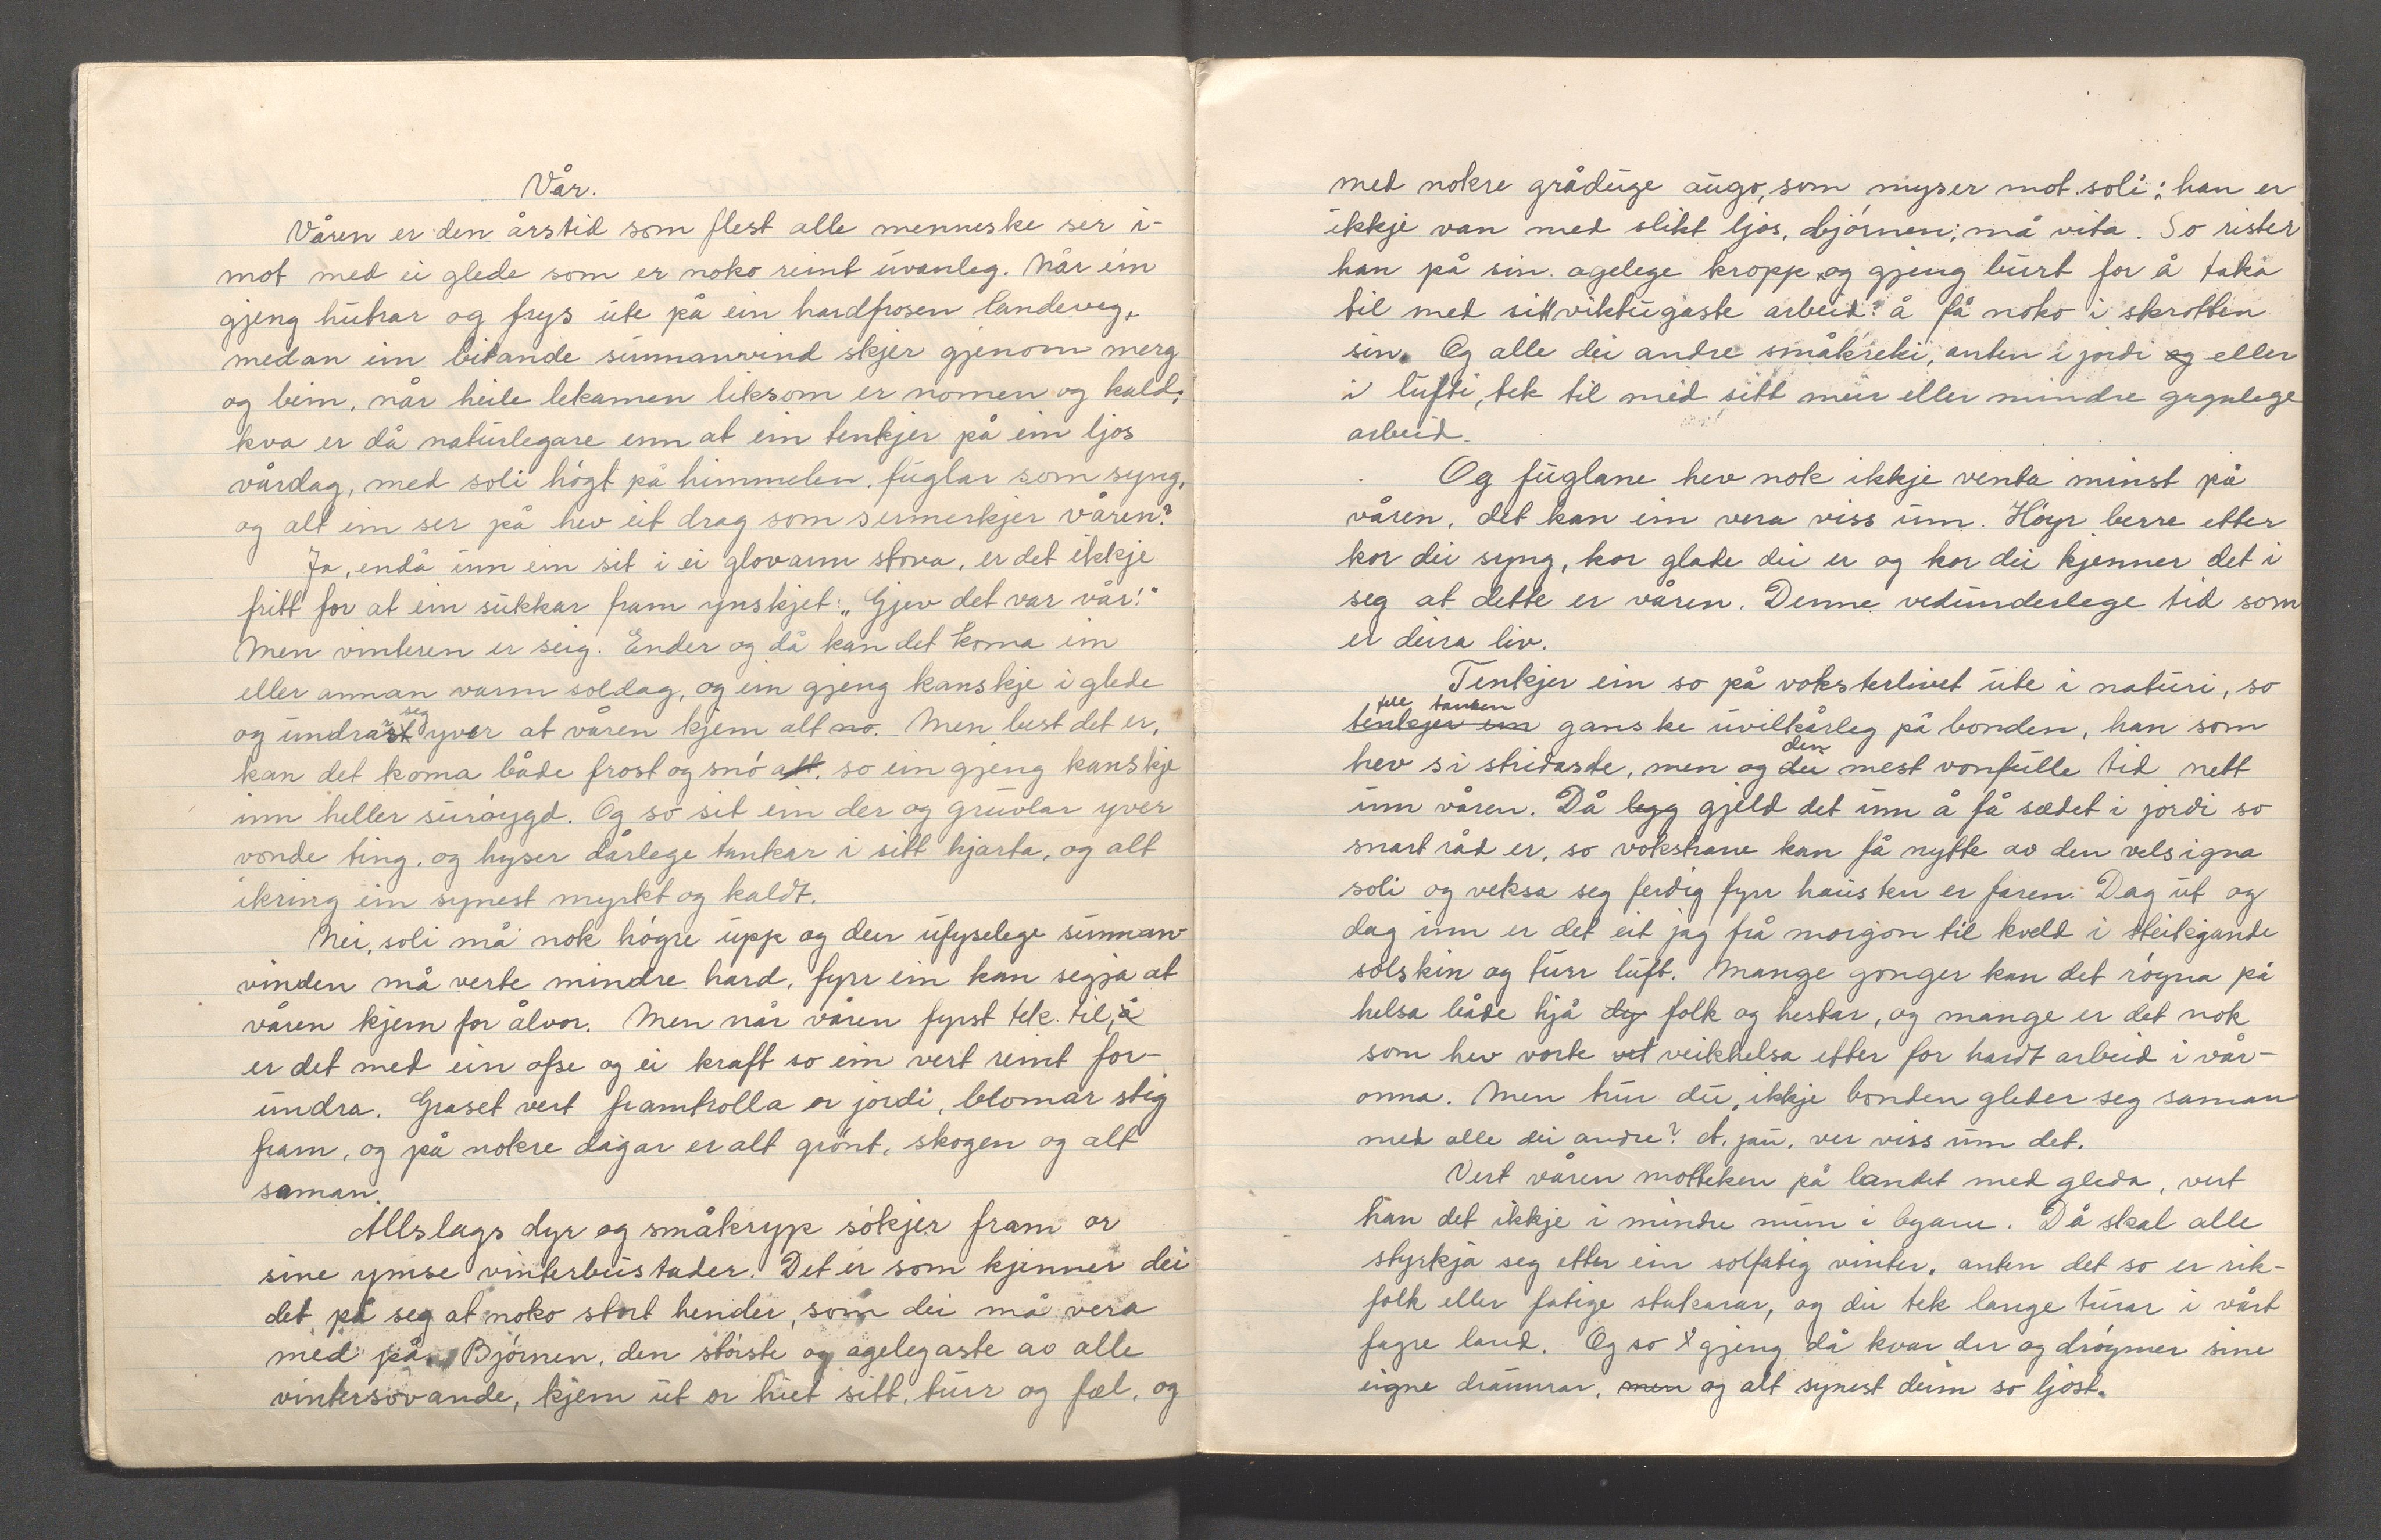 Vår.
Våren er den årstid som flest alle menneske ser i-
mot med ei glede som er noko reint uvanleg. Når ein
gjeng hutrar og frys ute på ein hardfrosen landeveg,
medan ein bitande sunnanvind skjer gjenom merg
og bein, når heile lekamen liksom er nomen og kald;
kva er då naturlegare enn at ein tenkjer på ein ljos
vårdag, med soli högt på himmelen, fuglar som syng,
og alt ein ser på hev eit drag som sermerkjer våren?
Ja, endå um ein sit i ei glovarm stova, er det ikkje
fritt for at ein sukkar fram ynskjet: „Gjev det var vår!"
Men vinteren er seig. Ender og då kan det koma ein
eller annan varm soldag, og ein gjeng kanskje i glede
og undrar seg yver at våren kjem alt no. Men best det er,
kan det koma både frost og snö att, so ein gjeng kanskje
inn heller suröygd. Og so sit ein der og gruvlar yver
vonde ting, og hyser dårlege tankar i sitt hjarta, og alt
ikring ein synest myrkt og kaldt.
Nei, soli må nok högre upp og den ufyselege sunnan-
vinden må verte mindre hard, fyrr ein kan segja at
våren kjem for ålvor. Men når våren fyrst tek til, å
er det med ein ofse og ei kraft so ein vert reint for-
undra. Graset vert framtrolla or jordi, blomar stig
fram, og på nokre dagar er alt grönt, skogen og alt
saman.
Allslags dyr og småkryp sökjer fram or
sine ymse vinterbustader. Det er som kjenner dei
det på seg at noko stort hender, som dei må vera
med på. Björnen, den störste og agelegaste av alle
vintersovande, kjem ut or hiet sitt, turr og fæl, og
med nokre gråduge augo, som myser mot soli; han er
ikkje van med slikt ljos, björnen, må vita. So rister
han på sin agelege kropp og gjeng burt for å taka
til med sitt viktugaste arbeid: å få noko i skrotten
sin. Og alle dei andre småkreki, anten i jordi og eller
i lufti, tek til med sitt meir eller mindre gagnlege
arbeid.
Og fuglane hev nok ikkje venta minst på
våren, det kan ein vera viss um. Höyr berre etter
kor dei syng, kor glade dei er og kor dei kjenner det i
seg at dette er våren. Denne vedunderlege tid som
er deira liv.
Tenkjer ein so på voksterlivet ute i naturi, so
fell tanken
tenkjer ein ganske uvilkårleg på bonden, han som
hev si stridaste, men og den dei mest vonfulle tid nett
um våren. Då legg gjeld det um å få sædet i jordi so
snart råd er, so vokstrane kan få nytte av den velsigna
soli og veksa seg ferdig fyrr hausten er faren. Dag ut og
dag inn er det eit jag frå morgon til kveld i steikjande
solskin og turr luft. Mange gonger kan det röyna på
helsa både hjå dy folk og hestar, og mange er det nok
som hev vorte vet veikhelsa etter for hardt arbeid i vår-
onna. Men trur du, ikkje bonden gleder seg saman
med alle dei andre? A, jau, ver viss um det.
Vert våren motteken på landet med gleda, vert
han det ikkje i mindre mun i byane. Då skal alle
styrkja seg etter ein solfatig vinter, anten det so er rik-
folk eller fatige stakarar, og dei tek lange turar i vårt
fagre land. Og so gjeng då kvar der og dröymer sine
eigne draumar, men og alt synest deim so ljost.